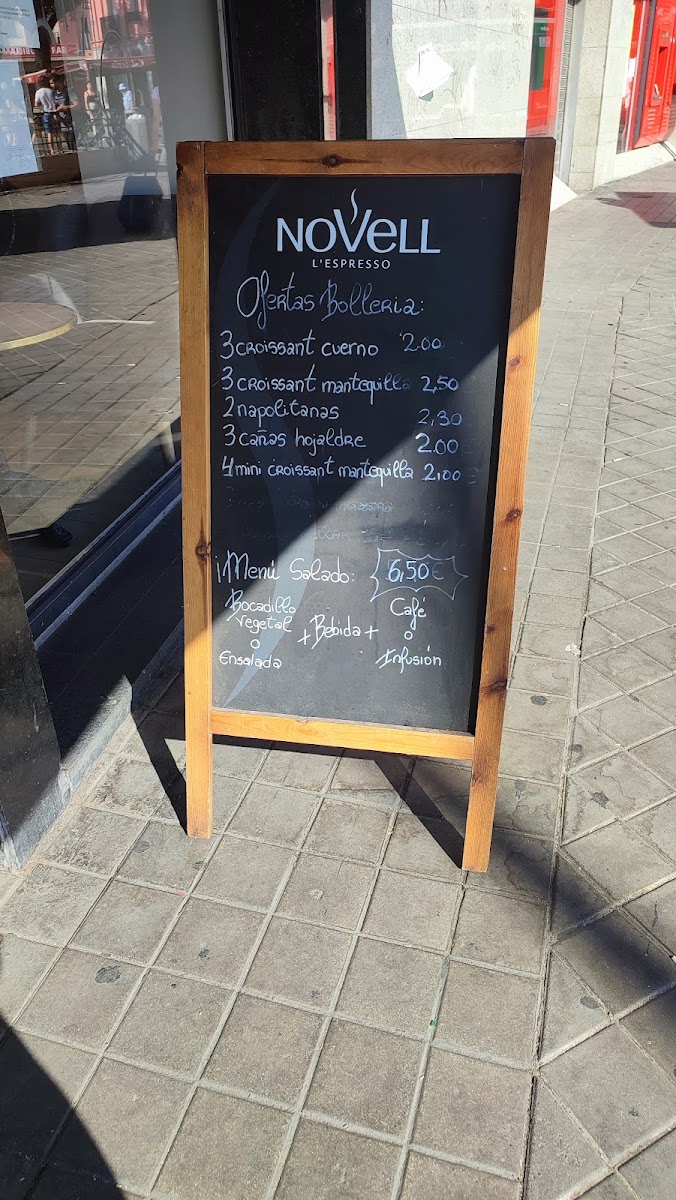 NOVELL
L'ESPRESSO
Ofertas Bolleria:
3 croissant cuerno 2.00
3 croissant mantequilla 2,50
2 napolitanas 2,30
3 cañas hojaldre 2.00
4 mini croissant mantequilla 2,00
¡Menú Salado: 6,50€
Bocadillo vegetal o Ensalada + Bebida + Café o Infusión